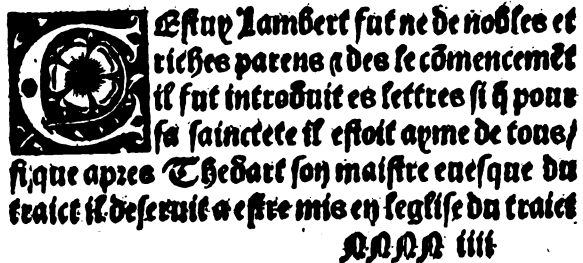 CEstuy Lambert fut ne de nobles et
riches parens ⁊ des le cōmencemēt
il fut introduit es lettres si q̄ pour
sa sainctete il estoit ayme de tous/
si que apres Thedart son maistre euesque du
traict il deseruit a estre mis en leglise du traict
NNNN iiii